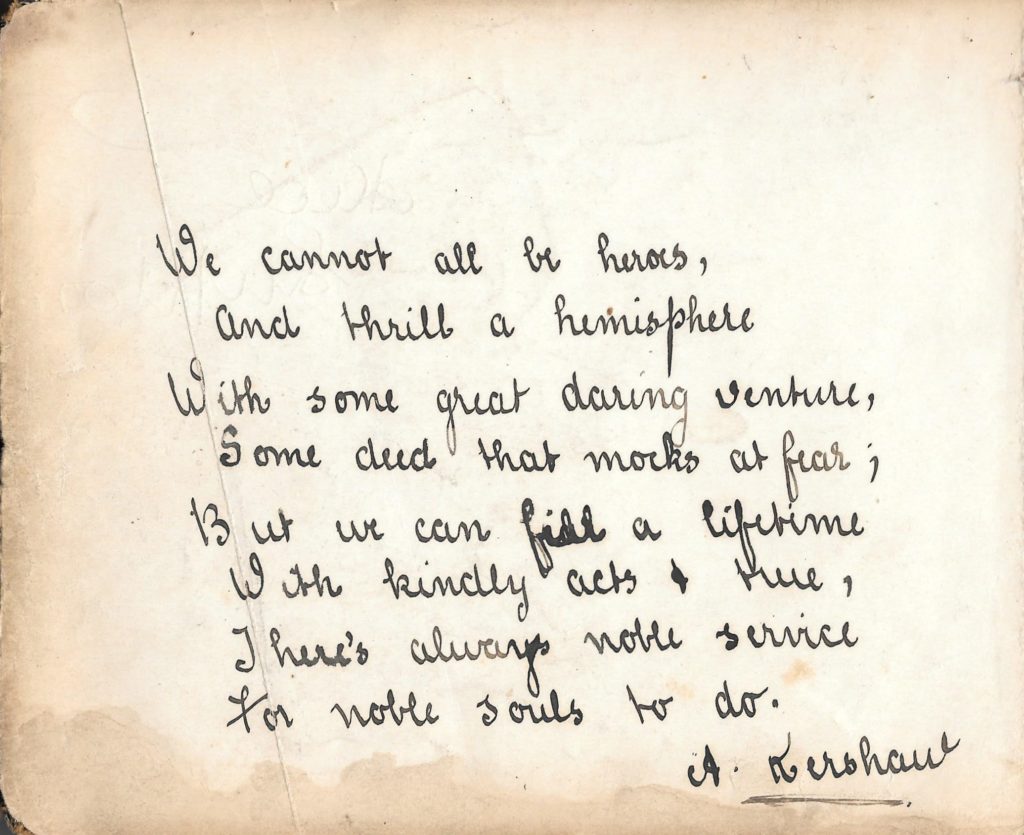 We cannot all be heroes,
And thrill a hemisphere
With some great daring venture,
Some deed that mocks at fear;
But we can fill a lifetime
With kindly acts & true,
There's always noble service
For noble souls to do.
A. Kershaw